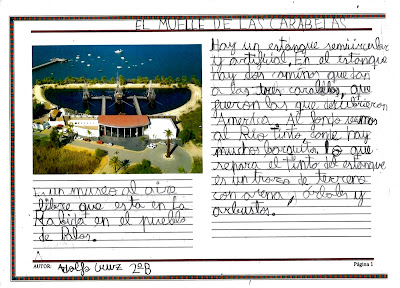 EL MUELLE DE LAS CARABELAS
Es un museo al aire
libre que esta en La
Rabida en el pueblo
de Palos.
Hay un estanque semicircular
y artificial, En el estanque
hay dos caminos que dan
a las tres carabelas, que
fueron las que descubrieron
America. Al fondo vemos
al Río tinto donde hay
muchos barquitos. Lo que
separa el tinto del estanque
es un trozo de terreno
con arena, árboles y
arbustos.
AUTOR: Adolfo Cruz 2ºB
Página 1